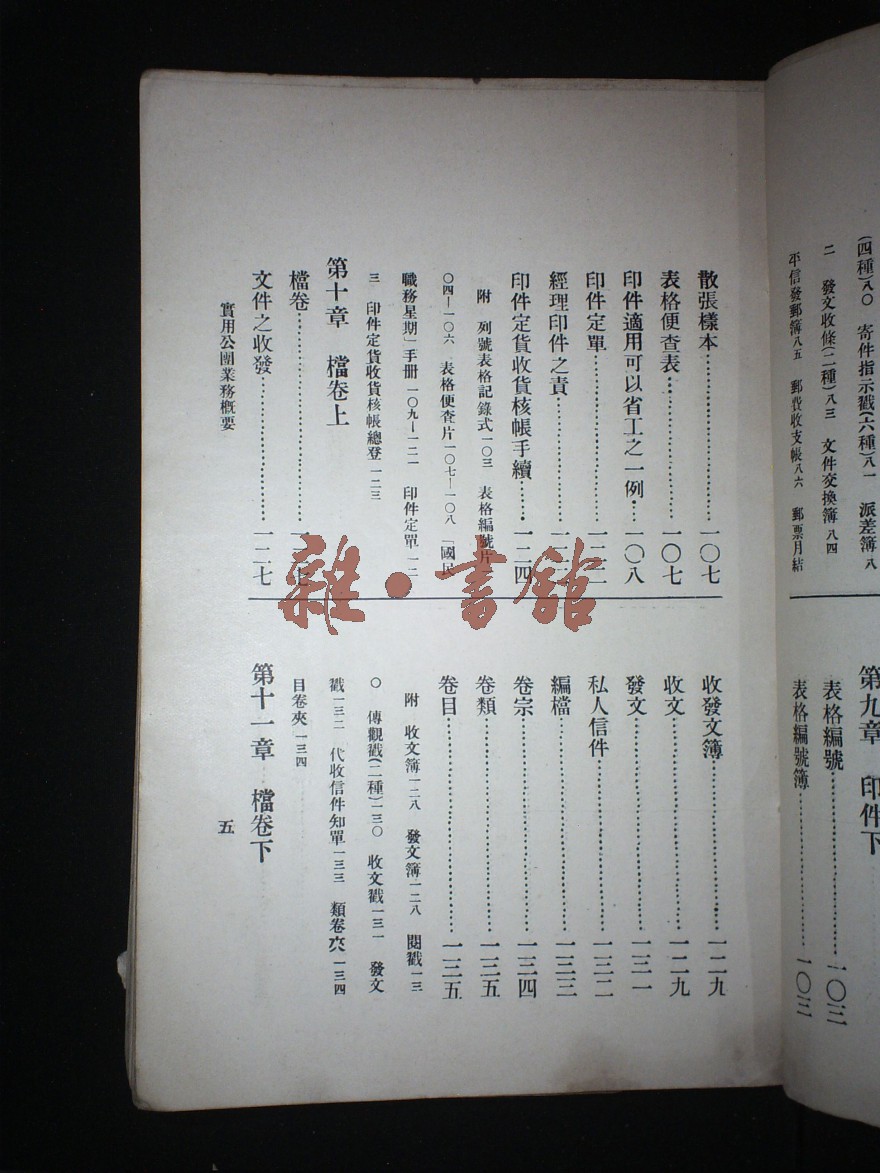 (四種)八〇　寄件指示戳(六種)八一　派差簿八
二　發文收條(二種)八三　文件交換簿八四
平信發郵簿八五　郵費收支帳八六　郵票月結
第九章　印件下
表格編號……一〇三
表格編號簿……一〇三
散張樣本……一〇七
表格便查表……一〇七
印件適用可以省工之一例……一〇八
印件定單……一二二
經理印件之責
印件定貨收貨核帳手續……一二四
附　列號表格記錄式一〇三　表格編號片一
〇四—一〇六　表格便查片一〇七—一〇八　「國民
職務星期」手册一〇九—一二一　印件定單一二
三　印件定貨收貨核帳總登一二三
第十章　檔卷上
檔卷
文件之收發……一二七
實用公團業務概要
收發文簿……一二九
收文……一二九
發文……一三一
私人信件……一三二
編檔……一三三
卷宗……一三四
卷類……一三五
卷目……一三五
附　收文簿一二八　發文簿一二八　閱戳一三
〇　傳觀戳(二種)一三〇　收文戳一三一　發文
戳一三二　代收信件知單一三三　類卷夾一三四
目卷夾一三四
第十一章　檔卷下
五
雜·書館